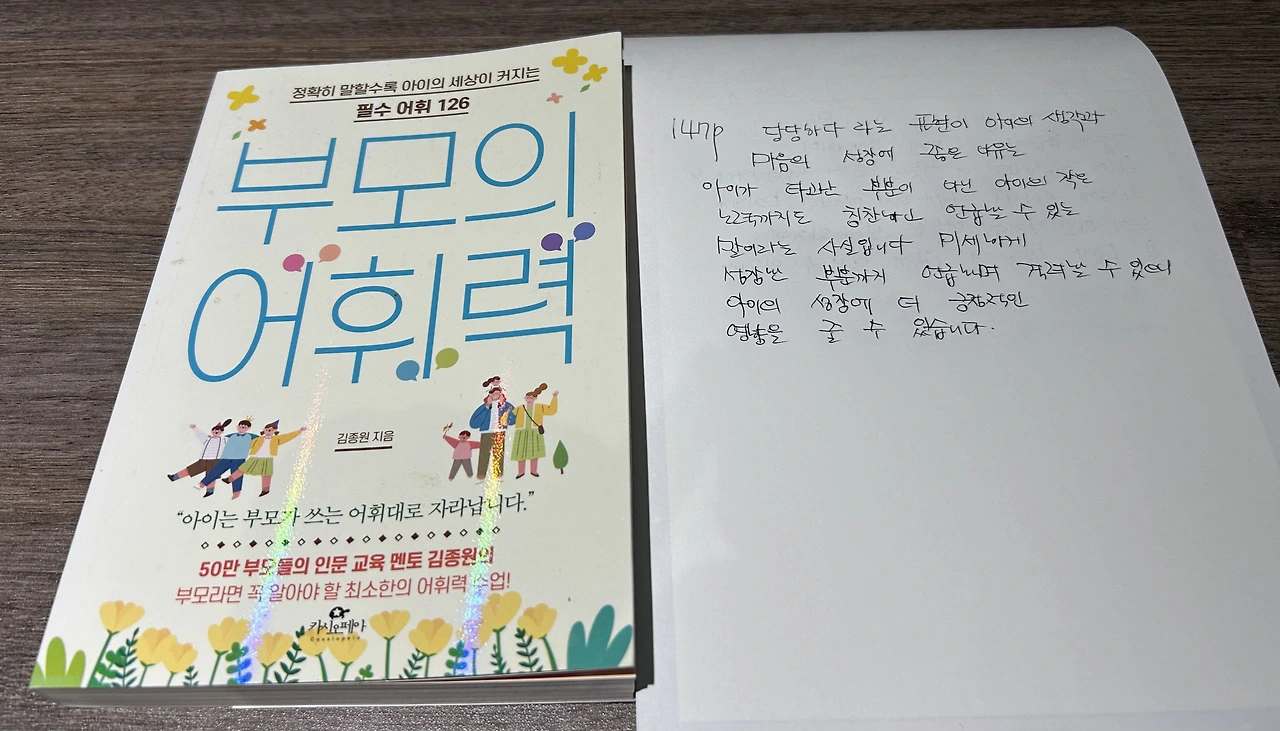 정확히 말할수록 아이의 세상이 커지는
필수 어휘 126
부모의
어휘력
김종원 지음
“아이는 부모가 쓰는 어휘대로 자라납니다.”
50만 부모들의 인문 교육 멘토 김종원의
부모라면 꼭 알아야 할 최소한의 어휘력 수업!
카시오페아
Cassiopeia
147p 당당하다 라는 표현이 아이의 생각과
마음의 성장에 좋은 이유는
아이가 타고난 부분이 아닌 아이의 작은
노력까지도 칭찬하고 언급할 수 있는
말이라는 사실입니다 미세하게
성장한 부분까지 언급하며 격려할 수 있으니
아이의 성장에 더 긍정적인
영향을 줄 수 있습니다.